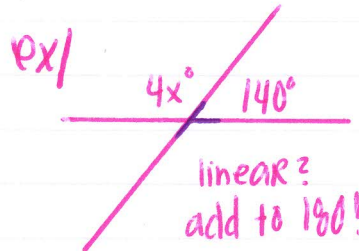 ex/
4x° 140°
linear?
add to 180!